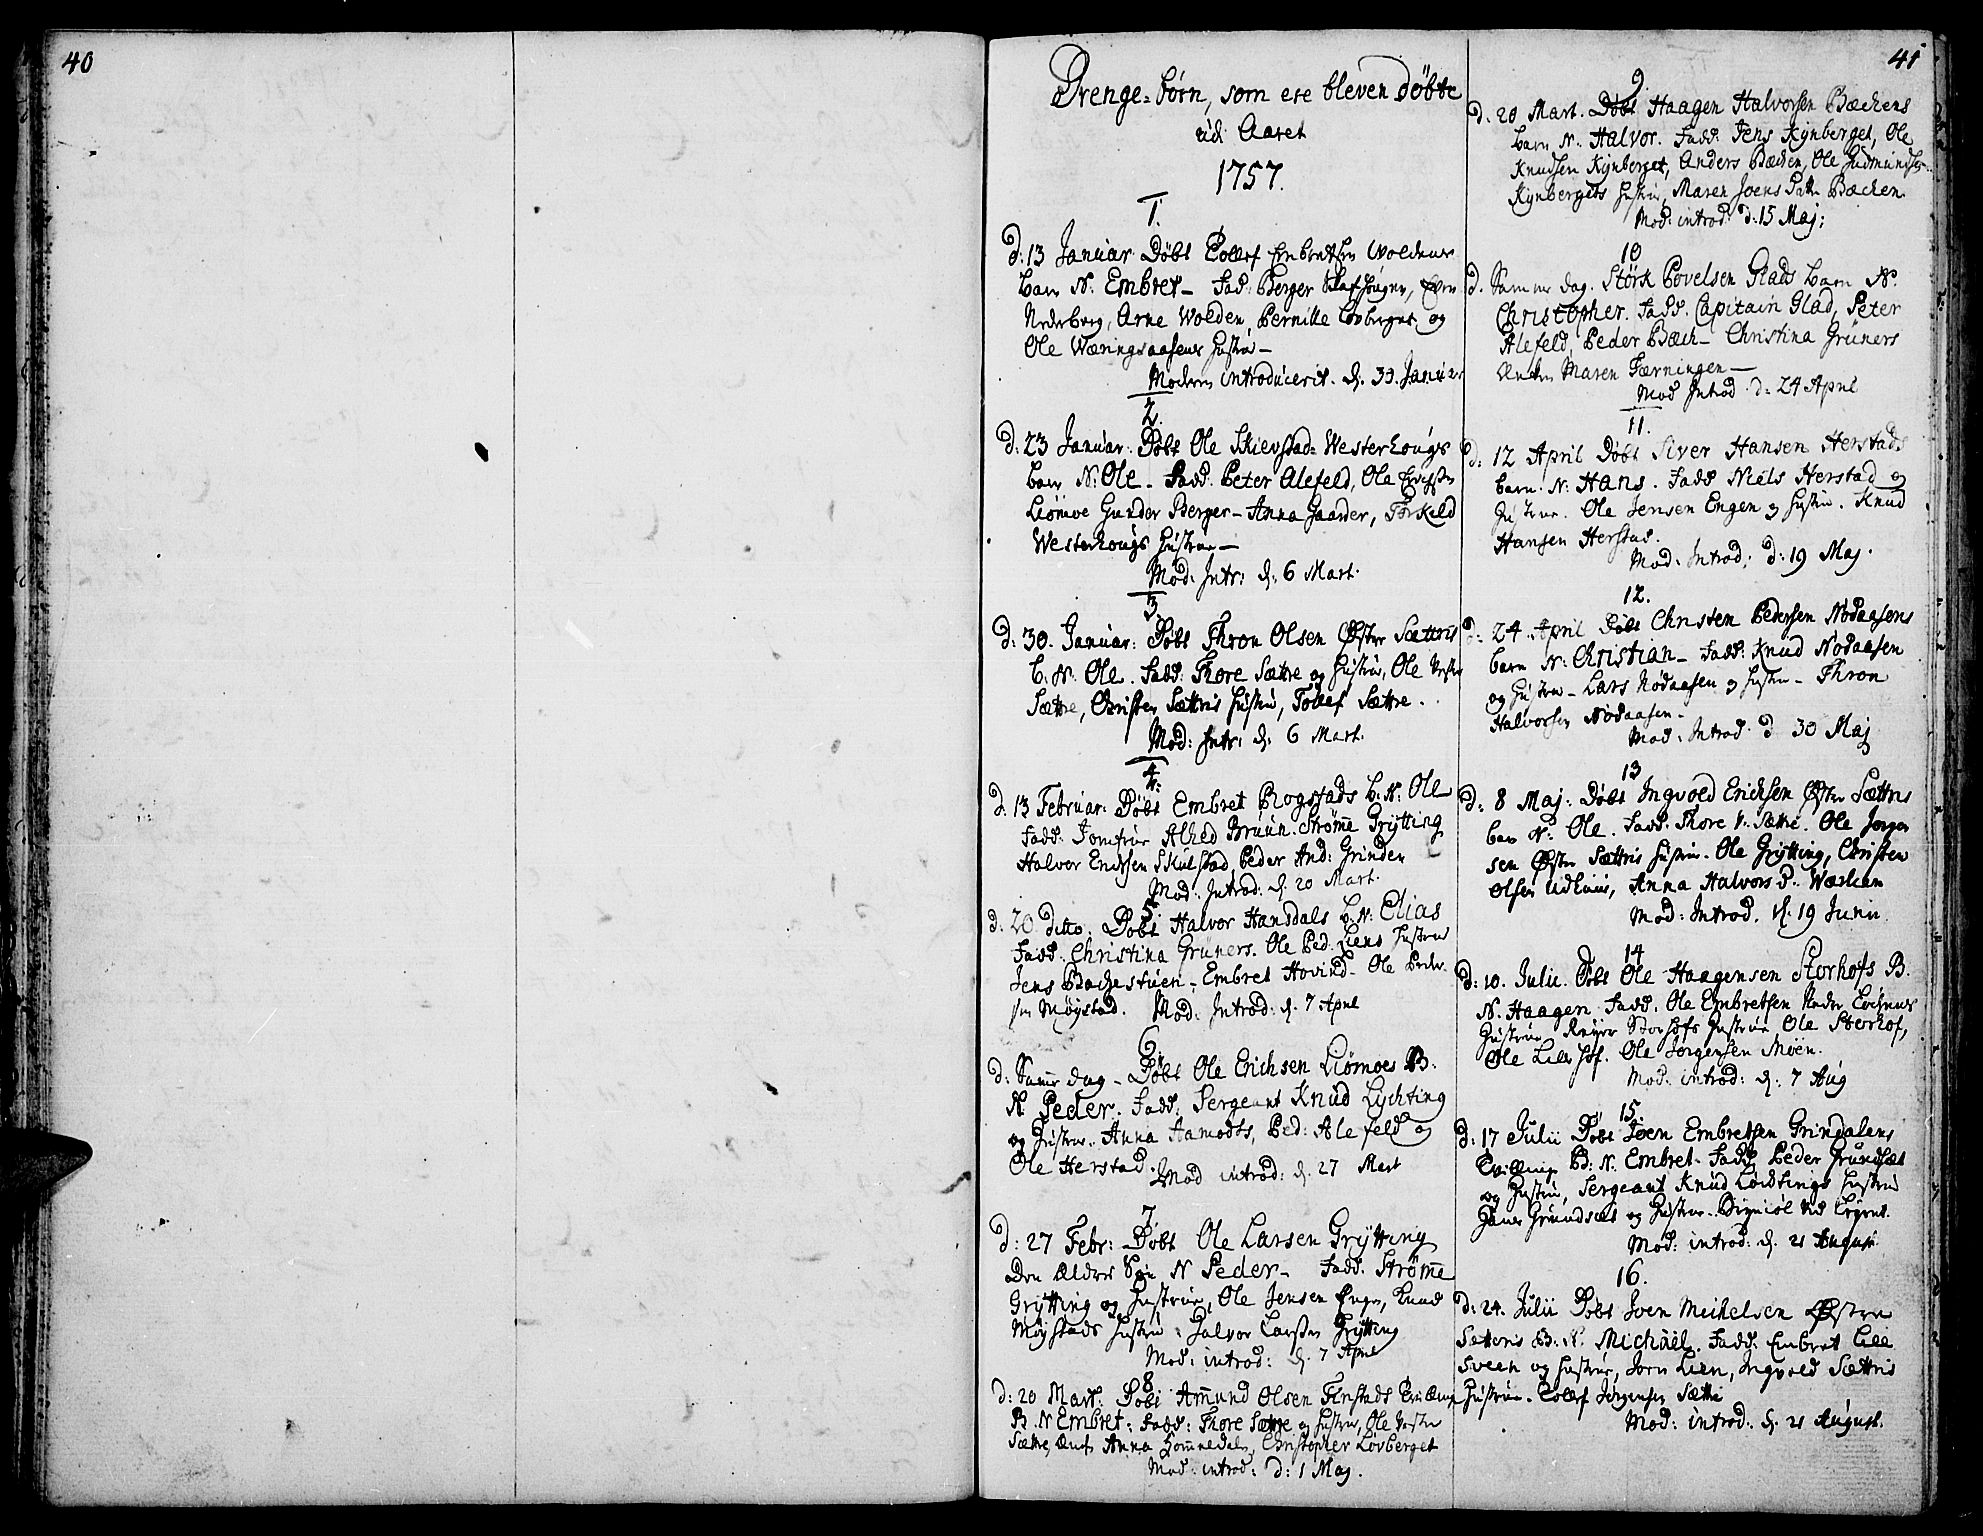 40
41
Drenge-börn, som ere bleven döbte
udi Aaret
1757.
1.
d: 13 Januar Döbt Tollef Embretsen Woldens
barn N: Embret - Fad: Berger
Nederberg, Arne Wolden, Pernille Lovberget og
Ole Wæringsaasens Hustru -
Moderen introducerit. d. Januar
2.
d: 23 Januar: Döbt Ole Skievstad-Westerhougs
barn N: Ole. Fadd. Peter Alefeld, Ole Erichsen
Liömoe Gunder Berger - Anna Gaarder, Torkild
Westerhougs Hustrue -
Mod: Intr: d. 6 Mart.
3.
d: 30. Januar: Döbt Thron Olsen Øster Sættris
b. N: Ole. Fadd: Thore Sættre og Hustru, Ole Vester
Sættre, Christen Sættris Hustru, Tollef Sættre.
Mod: Intr: d. 6 Mart.
4.
d. 13 Februar: Döbt Embret Rogstads b: N: Ole
Fadd: Jomfrue Alhed Bruun. Strömme Grÿtting
Halvor Erichsen Skulstad Peder And: Grinder
Mod: Introd: d. 20 Mart.
5.
d. 20 ditto. Döbt Halvor Hansdals b: N: Elias
Fadd: Christina Grüners. Ole Ped: Liens Hustrue
Jens Bachestuen - Embret Hovind - Ole Peder-
sen Möystad. Mod: Introd: d. 7 April
6.
d: Samme dag - Döbt Ole Erichsen Liömoes B.
N. Peder. Fadd: Sergeant Knud Lychting
og Hustrue. Anna Aamodts, Ped: Alefeld og
Ole Herstad. Mod introd: d. 27 Mart
7
d: 27 Febr: Döbt Ole Larsen Grÿtting
Den Ældres Sön N Peder - Fadd. Strömme
Grÿtting og Hustrue, Ole Jensen Engen, Knud
Möystads Hustru: Halvor Larsen Grÿtting
Mod: introd: d. 7 April
8
d: 20 Mart: Döbt Amund Olsen Finstads Tvilling
B. N Embret: Fadd: Thore Sættre og Hustrue, Ole Vester
Sættre, Anna Hommedals, Christopher Lövberget
Mod: introd: d: 1 Maj.
9
d: 20 Mart. Döbt Haagen Halvorsen Bæckens
barn N: Halvor. Fadd: Jens Kÿnberget, Ole
Knudsen Kÿnberget, Anders Bæcken, Ole Gudmundsen
Kÿnbergets Hustru, Maren Joens Datter Bæcken.
Mod: introd: d. 15 Maj:
10
d. Samme dag. Störk Povelsen Glads barn N.
Christopher. Fadd. Capitain Glad, Peter
Alefeld, Peder Bæch - Christina Grüners
Maren Tærningen -
Mod Introd. d: 24 April
11.
d: 12 April Döbt Siver Hansen Herstads
barn: N: Hans. Fadd Niels Herstad og
Hustrue. Ole Jensen Engen og Hustru. Knud
Hansen Herstad.
Mod: Introd: d: 19 Maj.
12.
d: 24 April Döbt Christen Pedersen Nödaasens
barn N: Christian - Fadd: Knud Nödaasen
og Hustrue - Lars Nödaasen og Hustru - Thron
Halvorsen Nödaasen -
Mod: Introd: d 30 Maj
13
d: 8 Maj: Döbt Ingvold Erichsen Øster Sættris
barn N: Ole. Fadd. Thore V. Sættre. Ole Jorgen
sen Øster Sættris Hustru. Ole Grÿtting, Christen
Olsen Udhuus, Anna Halvors d.
Mod: Introd. d. 19 Junii
14
d: 10. Julii. Döbt Ole Haagensen Storhofs B.
N. Haagen. Fadd: Ole Embretsen
Hustrue Storhofs Hustrue Ole Storhof,
Ole Lillehof. Ole Jorgensen Moen.
Mod: introd: d. 7 Aug
15.
d: 17 Julii Döbt Joen Embretsen Grindalens
Tvilling B: N. Embret. Fadd Peder Grundset
og Hustru, Sergeant Knud Hustru
Grundset og Hustrue.
Mod: introd: d. 21 August
16.
d: 24. Julii Döbt Iven Meichelsen Østen
Setteris B: N. Michäel. Fadd: Embret Lille
Sveen og Hustrue, Jorn Lien, Ingvold Sættris
Hustrue. Tollef Jörgensen Sættre
Mod: introd: d. 21 August.